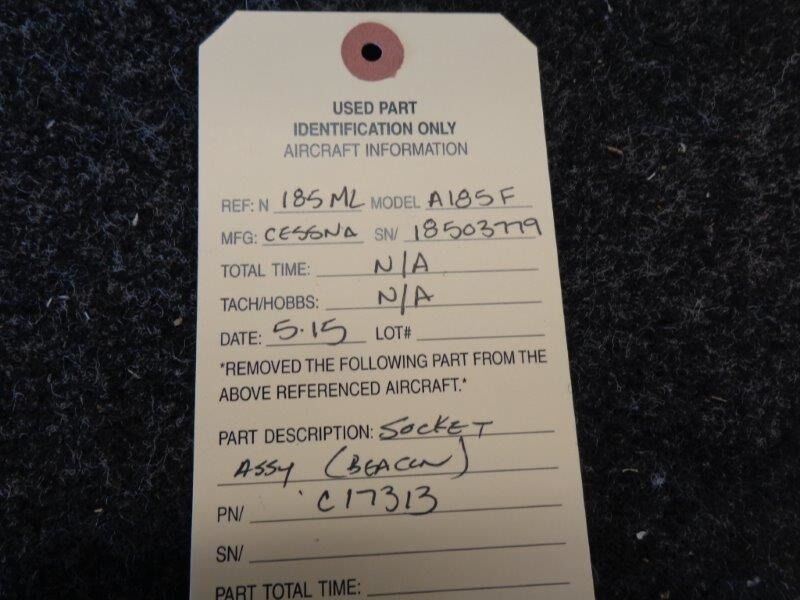 USED PART
IDENTIFICATION ONLY
AIRCRAFT INFORMATION
REF: N 185ML MODEL A185F
MFG: CESSNA SN/ 18503779
TOTAL TIME: N/A
TACH/HOBBS: N/A
DATE: 5.15 LOT#
*REMOVED THE FOLLOWING PART FROM THE
ABOVE REFERENCED AIRCRAFT.*
PART DESCRIPTION: SOCKET
ASSY (BEACON)
PN/ C17313
SN/
PART TOTAL TIME: